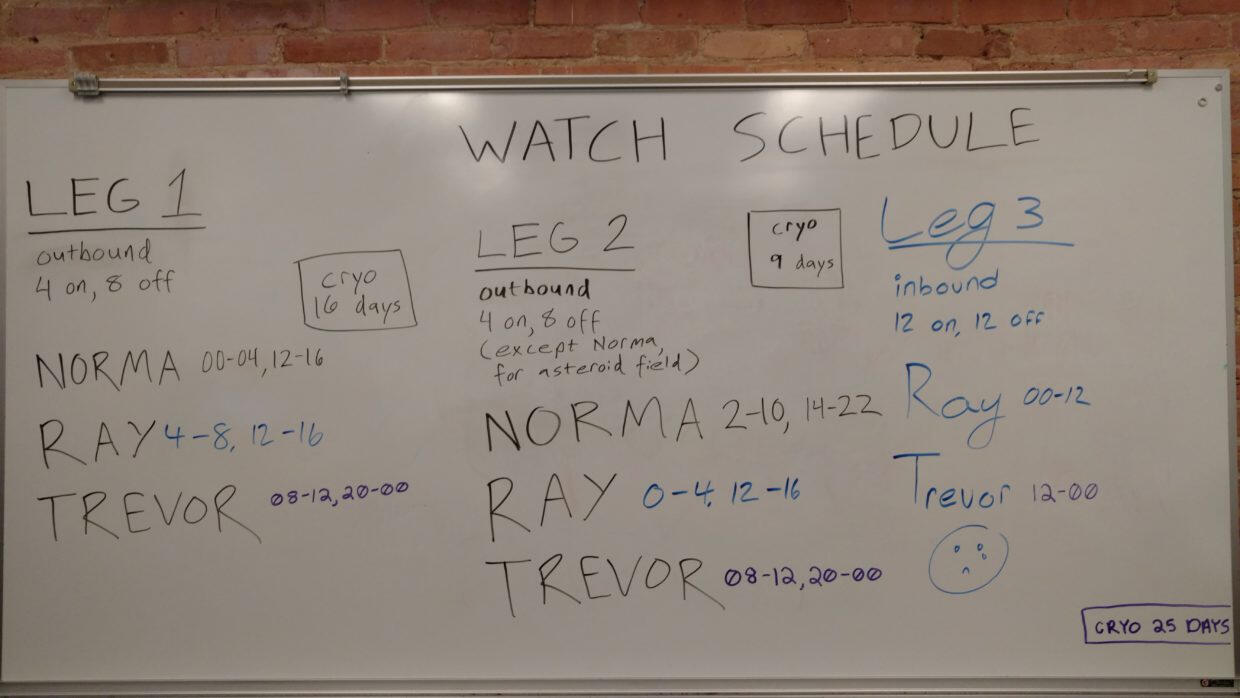 WATCH SCHEDULE
LEG 1
outbound
4 on, 8 off
cryo
16 days
NORMA 00-04, 12-16
RAY 4-8, 12-16
TREVOR 08-12, 20-00
LEG 2
outbound
4 on, 8 off
(except Norma,
for asteroid field)
cryo
9 days
NORMA 2-10, 14-22
RAY 0-4, 12-16
TREVOR 08-12, 20-00
Leg 3
inbound
12 on, 12 off
Ray 00-12
Trevor 12-00
CRYO 25 DAYS